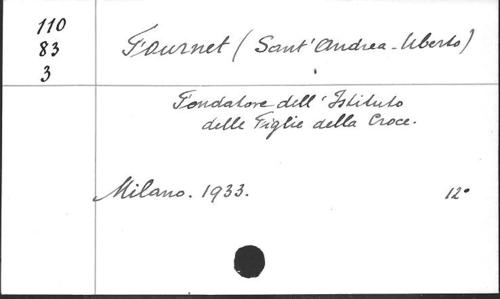 110
83
3
Fournet (Sant' Andrea-Uberto)
Fondatore dell' Istituto
delle Figlie della Croce.
Milano. 1933. 12°